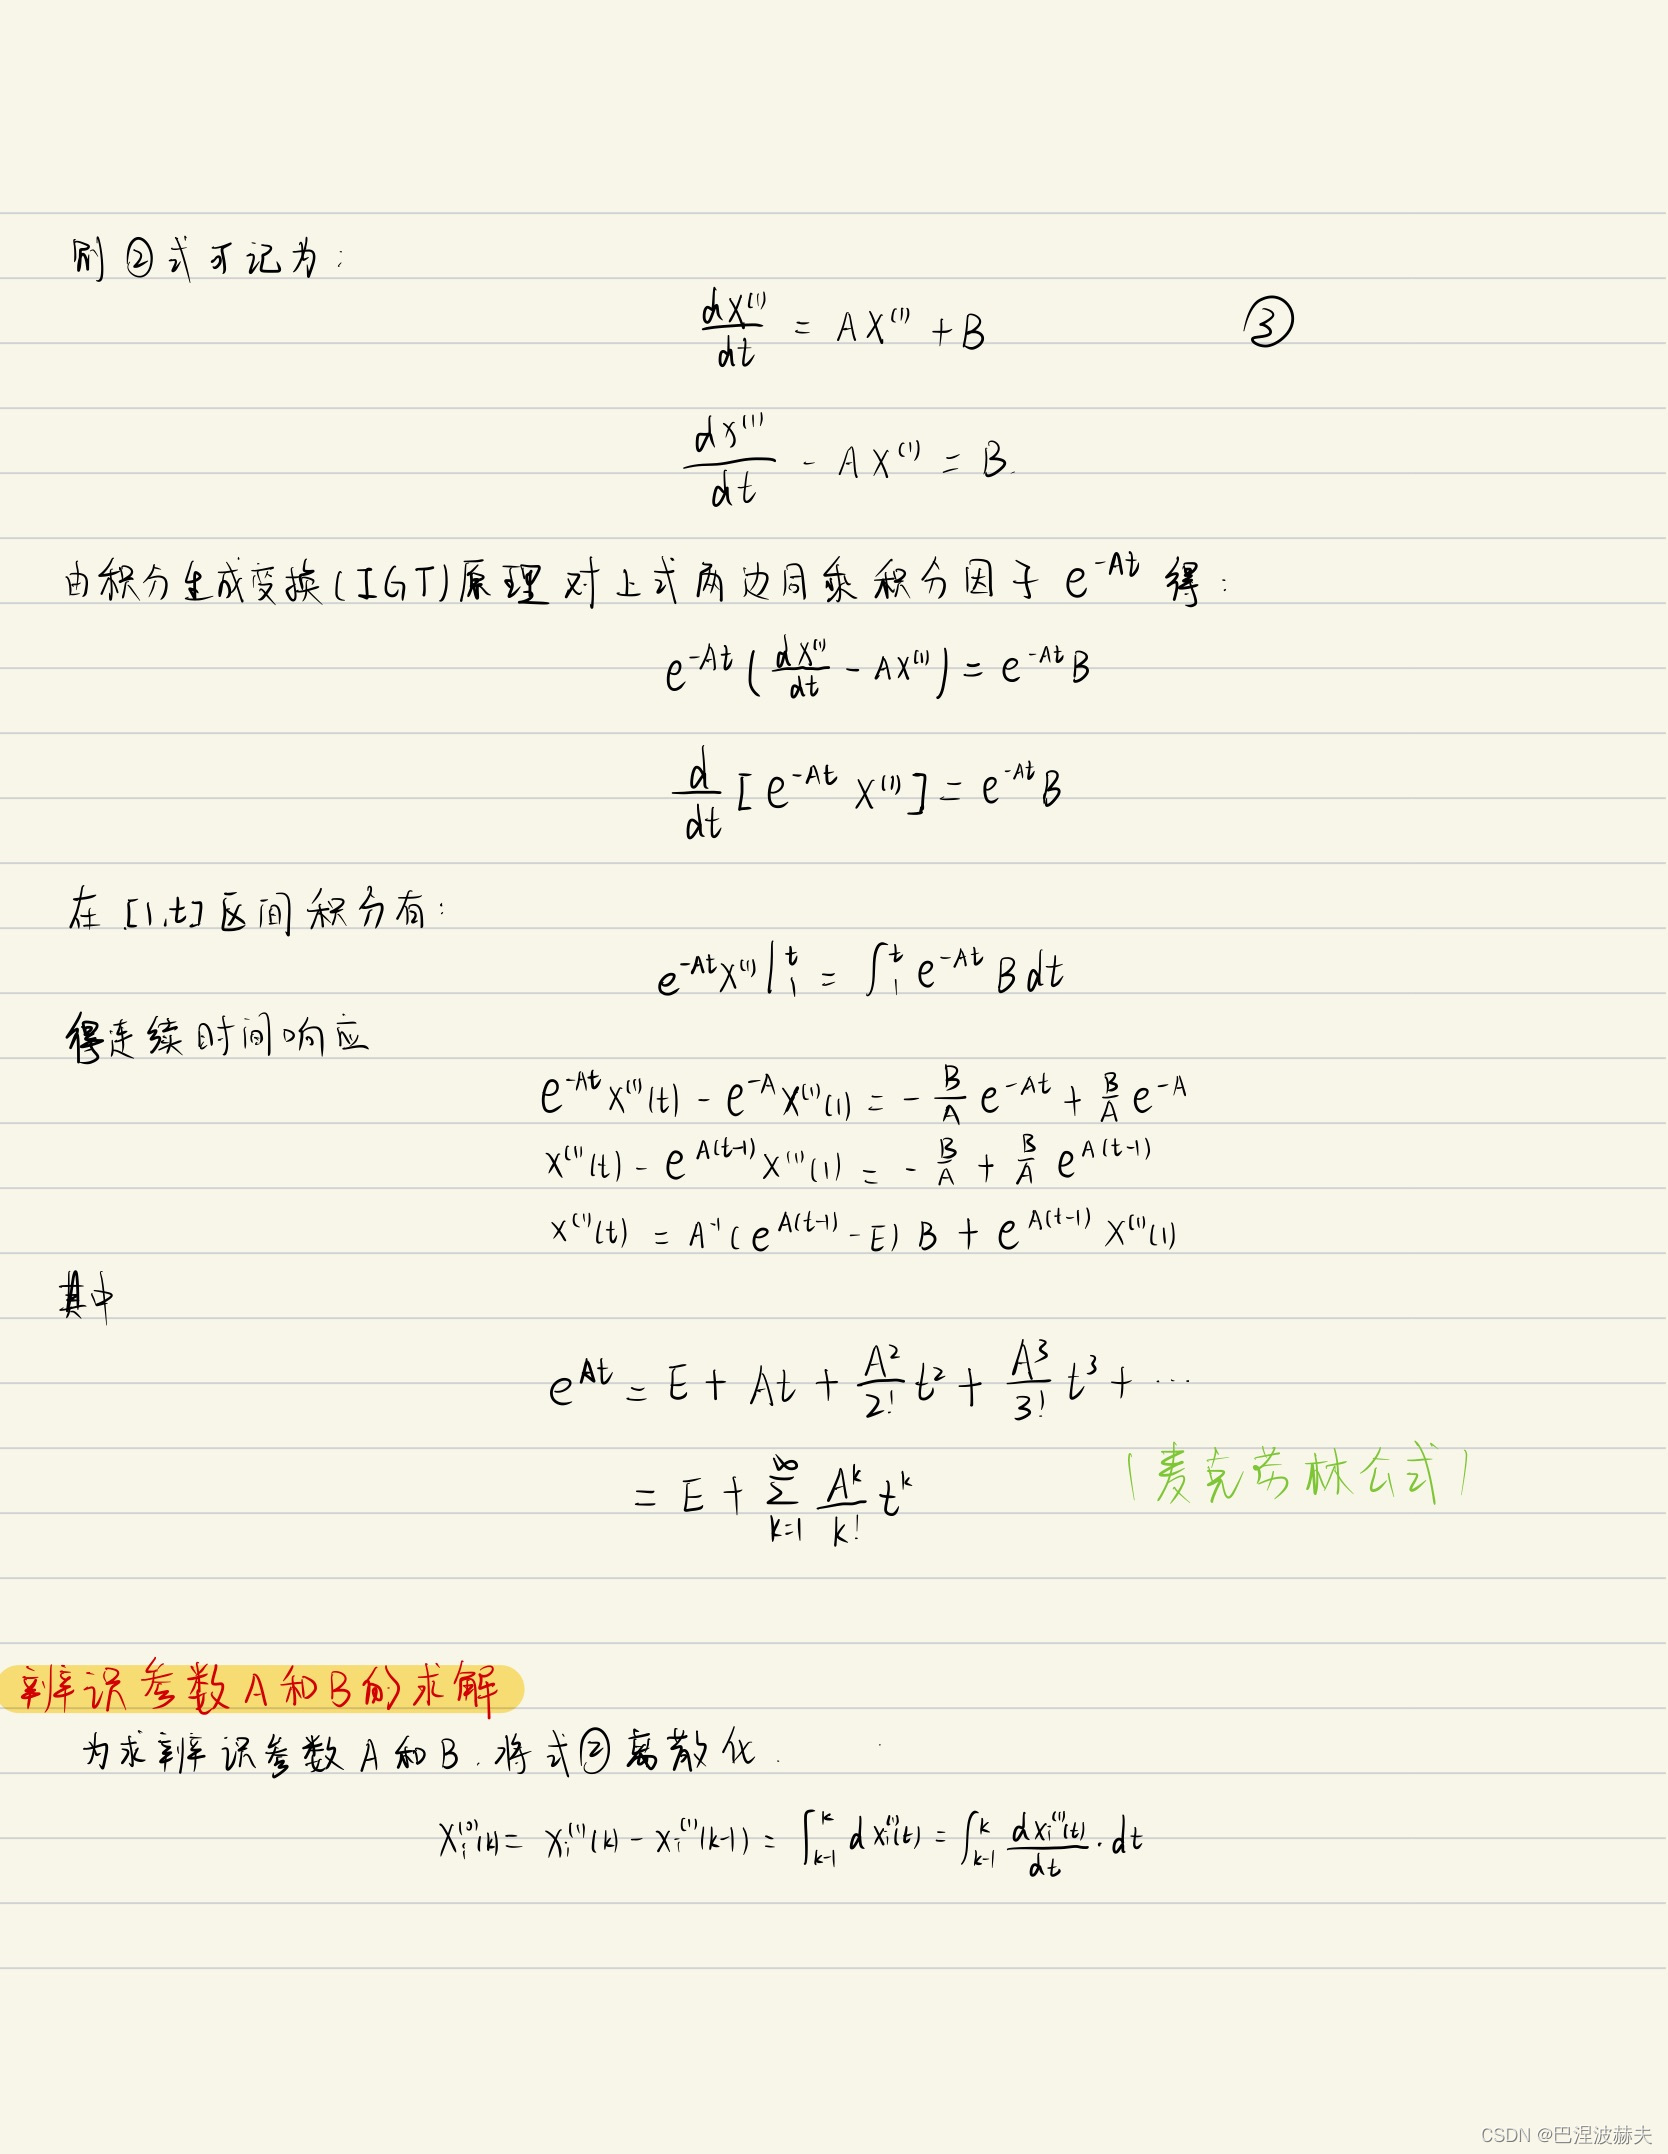 则②式可记为:
dX⁽¹⁾/dt = AX⁽¹⁾ + B ③
dX⁽¹⁾/dt - AX⁽¹⁾ = B.
由积分生成变换(IGT)原理对上式两边同乘积分因子 e^{-At} 得:
e^{-At}(dX⁽¹⁾/dt - AX⁽¹⁾) = e^{-At}B
d/dt[e^{-At} X⁽¹⁾] = e^{-At}B
在[1,t]区间积分有:
e^{-At}X⁽¹⁾|₁ᵗ = ∫₁ᵗ e^{-At} B dt
得连续时间响应
e^{-At}X⁽¹⁾(t) - e^{-A}X⁽¹⁾(1) = -B/A e^{-At} + B/A e^{-A}
X⁽¹⁾(t) - e^{A(t-1)}X⁽¹⁾(1) = -B/A + B/A e^{A(t-1)}
X⁽¹⁾(t) = A⁻¹(e^{A(t-1)} - E)B + e^{A(t-1)} X⁽¹⁾(1)
其中
e^{At} = E + At + A²/2! t² + A³/3! t³ + ···
= E + ∑_{k=1}^{∞} A^k/k! t^k (麦克劳林公式)
辨识参数A和B的求解
为求辨识参数A和B.将式②离散化.
X_i⁽⁰⁾(k) = X_i⁽¹⁾(k) - X_i⁽¹⁾(k-1) = ∫_{k-1}^{k} dX_i⁽¹⁾(t) = ∫_{k-1}^{k} dX_i⁽¹⁾(t)/dt · dt
CSDN @巴涅波赫夫